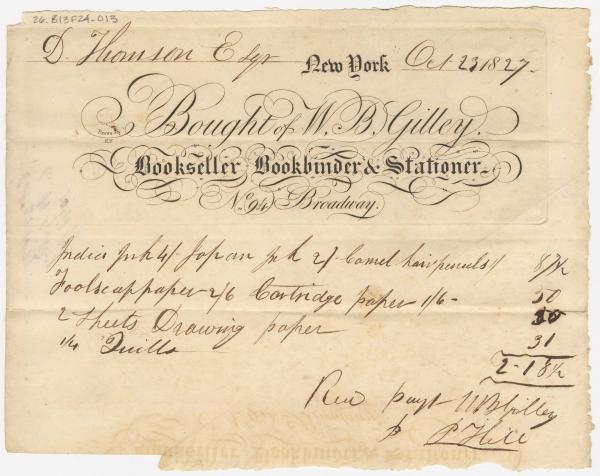 26.B13F24-013
D. Thomson Esqr New York Oct 23 1827-
Bought of W. B. Gilley.
Bookseller Bookbinder & Stationer.
No. 94 Broadway.
India Ink 4/- Japan Ink 2/- Camel hair pencils 1/ 87½
Foolscap paper 2/6 Cartridge paper 1/6- 50
2 Sheets Drawing paper 50
¼ Quills 31
2-18½
Recd payt WB Gilley
P Hill
Bookseller Bookbinder & Stationer